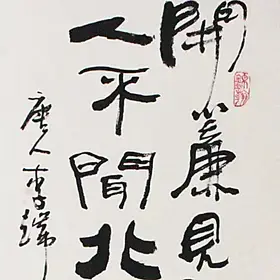 開簾見
人不聞北
唐人李端